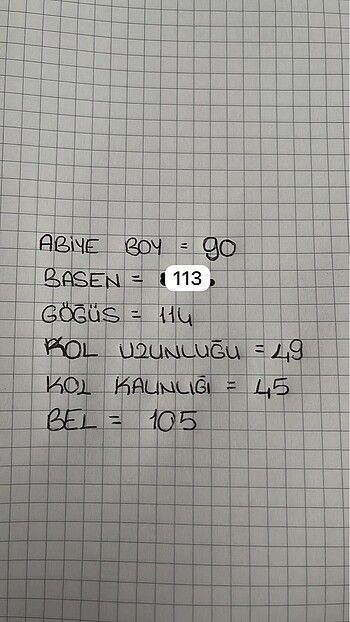 ABİYE BOY = 90
BASEN = 113
GÖĞÜS = 114
KOL UZUNLUĞU = 49
KOL KALINLIĞI = 45
BEL = 105